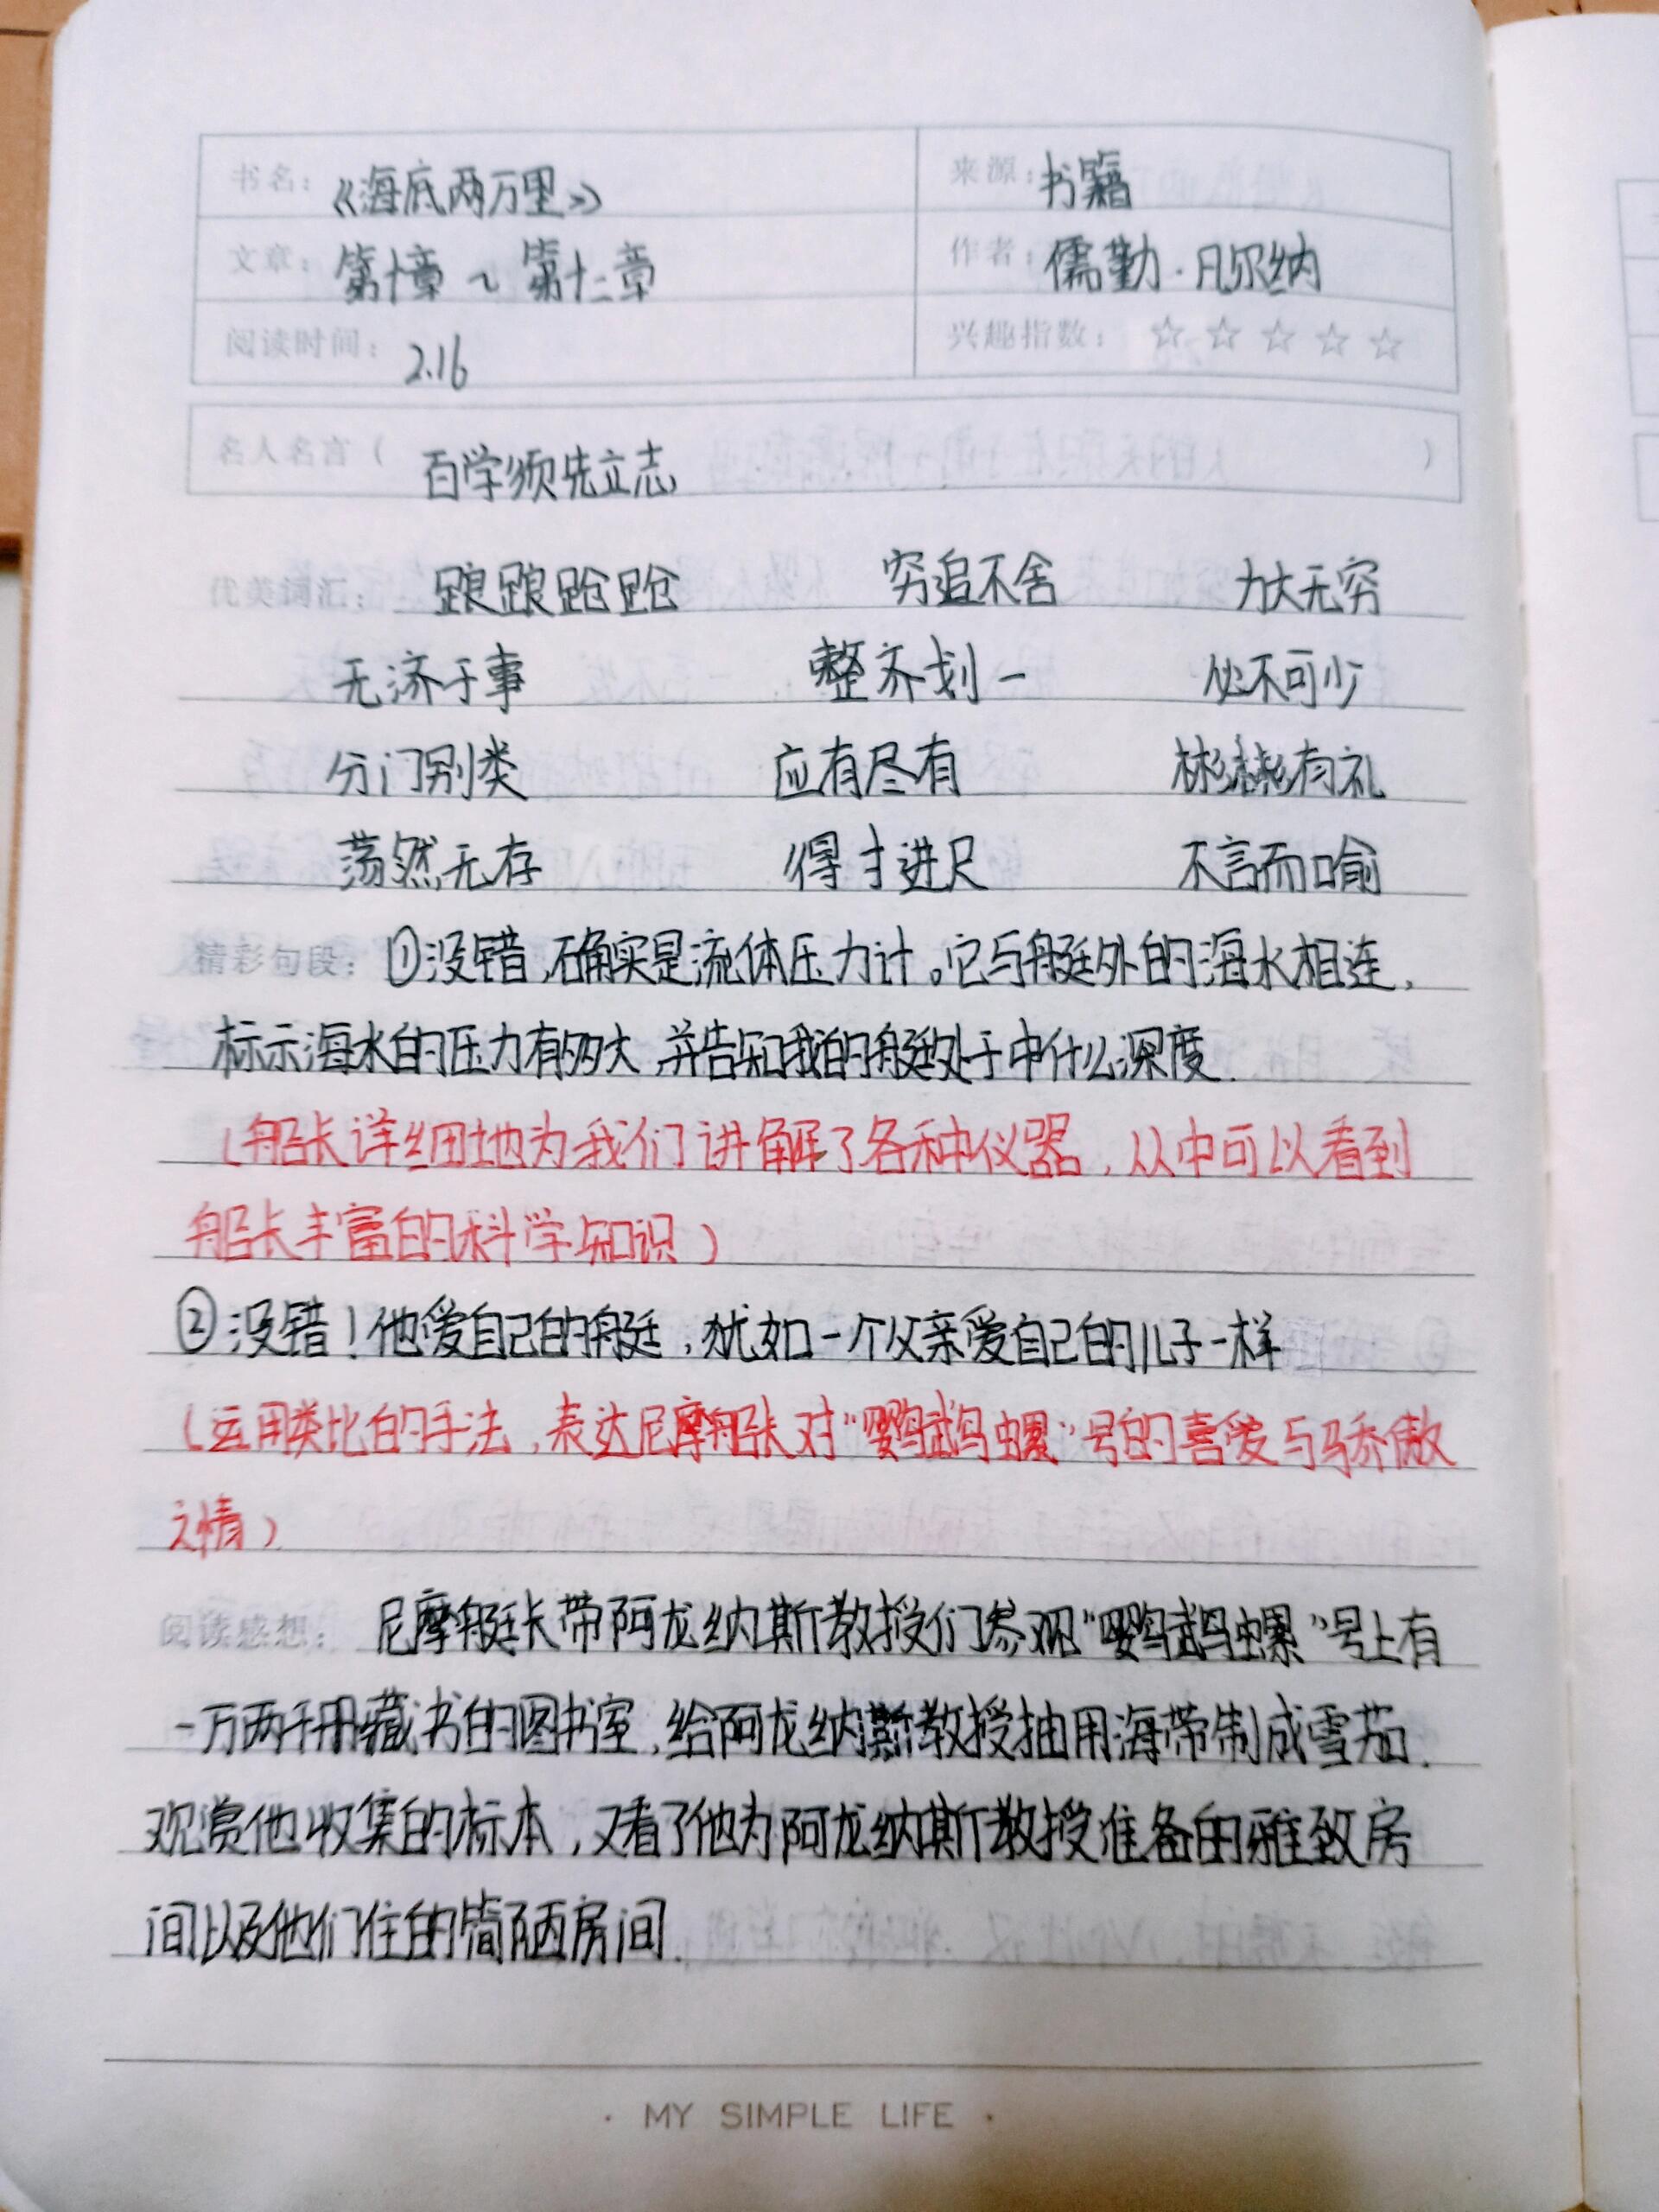 书名：《海底两万里》 来源：书籍
文章：第十章～第十二章 作者：儒勒·凡尔纳
阅读时间：2.16 兴趣指数：☆☆☆☆☆
名人名言（ 百学须先立志 ）
优美词汇： 踉踉跄跄 穷追不舍 力大无穷
无济于事 整齐划一 必不可少
分门别类 应有尽有 彬彬有礼
荡然无存 得寸进尺 不言而喻
精彩句段：①没错，确实是流体压力计。它与艇外的海水相连，
标示海水的压力有多大，并告知我的艇处于中什么深度.
（船长详细地为我们讲解了各种仪器，从中可以看到
船长丰富的科学知识）
②没错！他爱自己的艇，犹如一个父亲爱自己的儿子一样
（运用类比的手法，表达尼摩船长对“鹦鹉螺”号的喜爱与骄傲
之情）
阅读感想： 尼摩艇长带阿龙纳斯教授们参观“鹦鹉螺”号上有
一万两千册藏书的图书室，给阿龙纳斯教授抽用海带制成雪茄.
观赏他收集的标本，又看了他为阿龙纳斯教授准备的雅致房
间以及他们住的简陋房间.
· MY SIMPLE LIFE ·